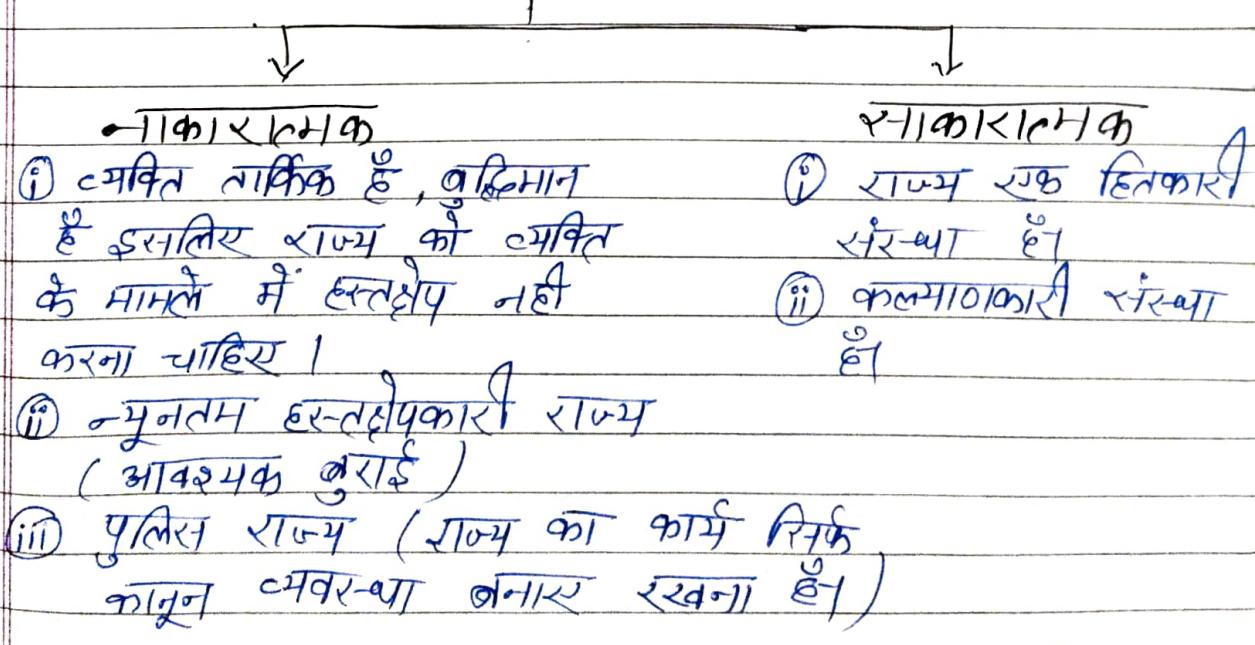 नाकारात्मक
(i) व्यक्ति तार्किक हैं, बुद्धिमान
हैं इसलिए राज्य को व्यक्ति
के मामले में हस्तक्षेप नही
करना चाहिए।
(ii) न्यूनतम हस्तक्षेपकारी राज्य
(आवश्यक बुराई)
(iii) पुलिस राज्य (राज्य का कार्य सिर्फ
कानून व्यवस्था बनाए रखना हैं।)
साकारात्मक
(i) राज्य एक हितकारी
संस्था हैं।
(ii) कल्याणकारी संस्था
हैं।